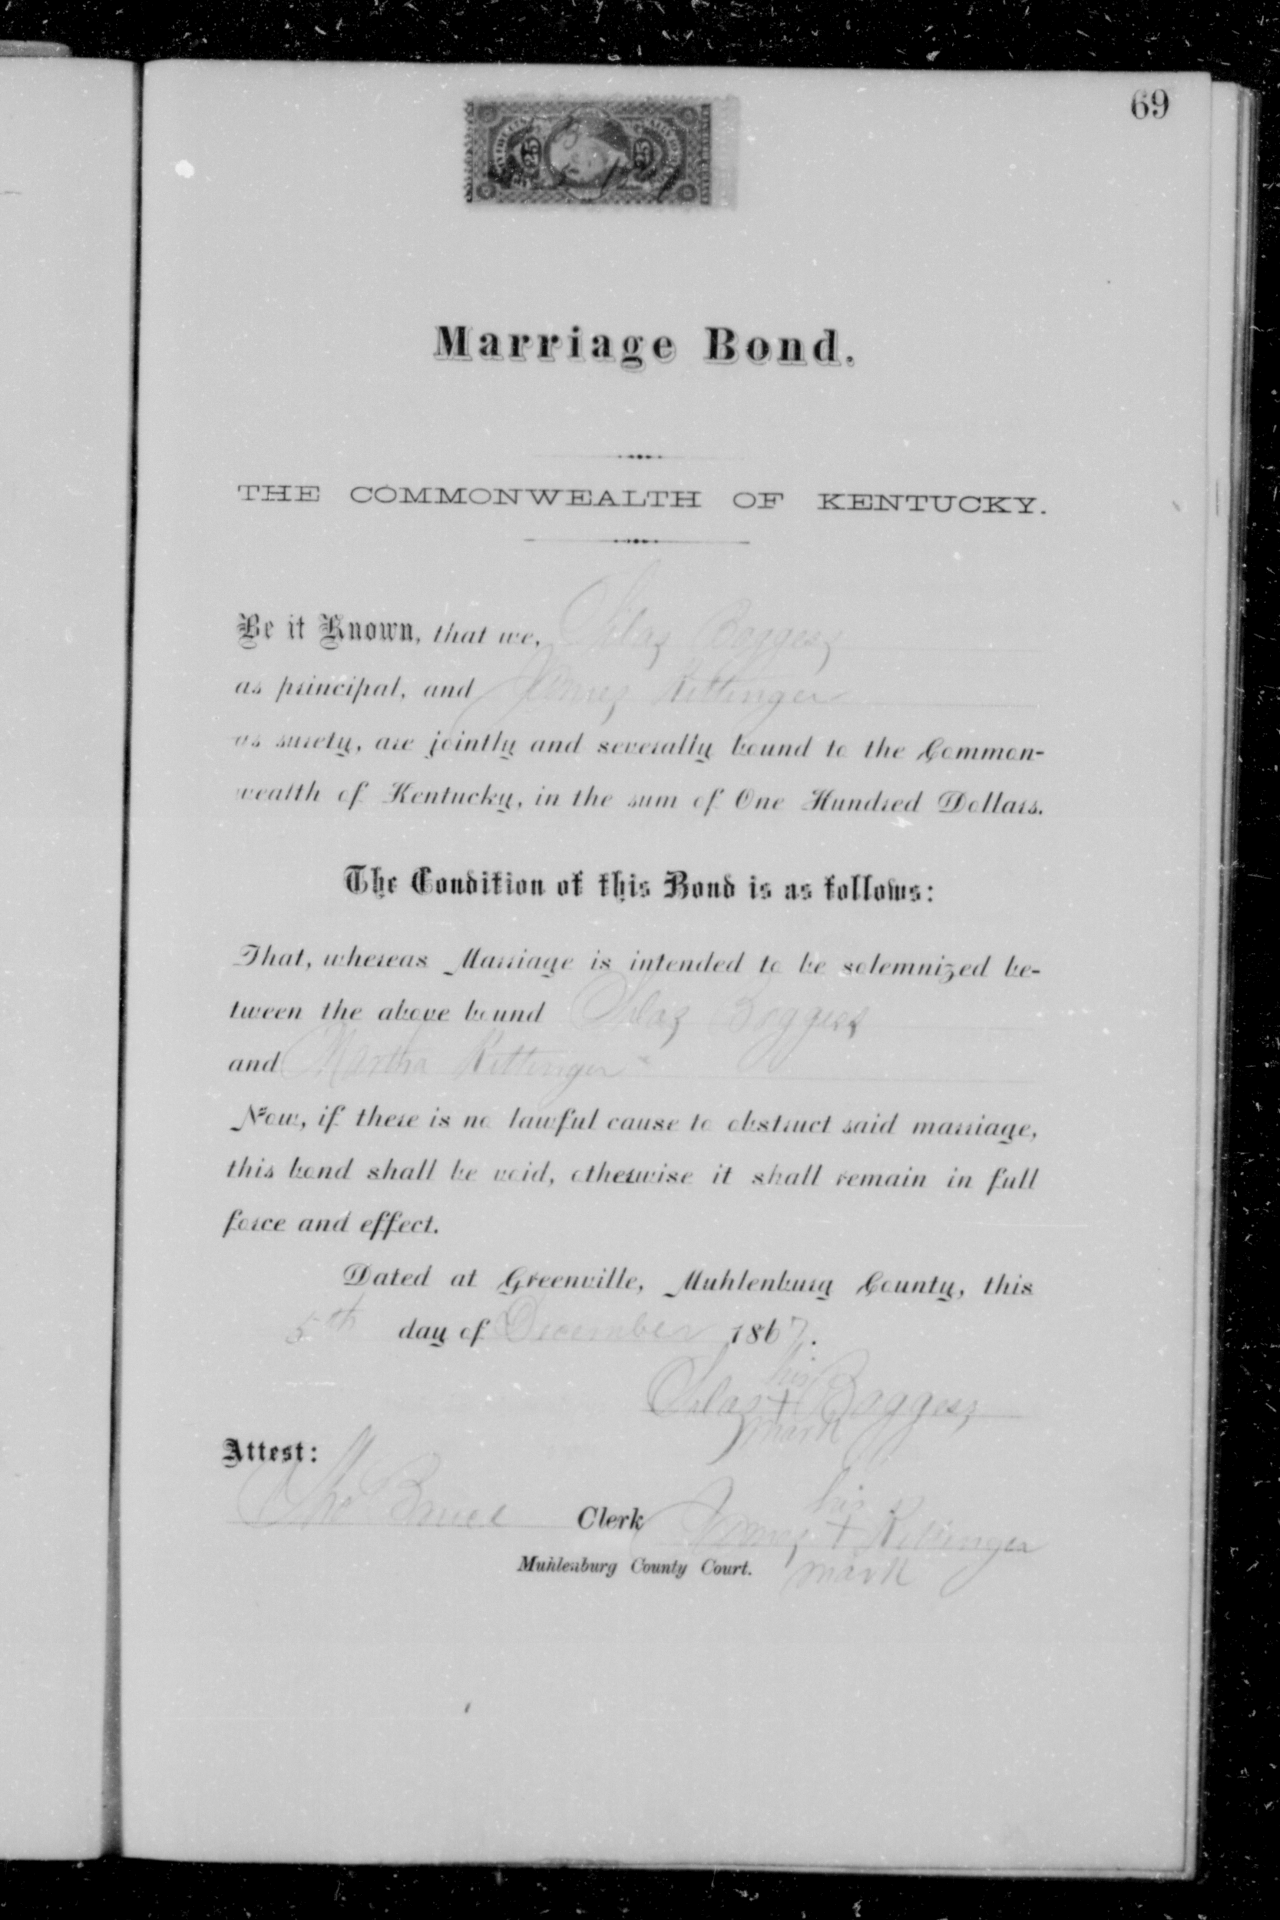 69
25 25
Marriage Bond.
THE COMMONWEALTH OF KENTUCKY.
Be it Known, that we, Silas Boggess
as principal, and James Kittinger
as surety, are jointly and severally bound to the Common-
wealth of Kentucky, in the sum of One Hundred Dollars.
The Condition of this Bond is as follows:
That, whereas Marriage is intended to be solemnized be-
tween the above bound Silas Boggess
and Martha Kittinger
Now, if there is no lawful cause to obstruct said marriage,
this bond shall be void, otherwise it shall remain in full
force and effect.
Dated at Greenville, Muhlenburg County, this
5th day of December 1867.
his
Silas + Boggess
mark
Attest:
Tho Bruce Clerk
his
James + Kittinger
Muhlenburg County Court.
mark